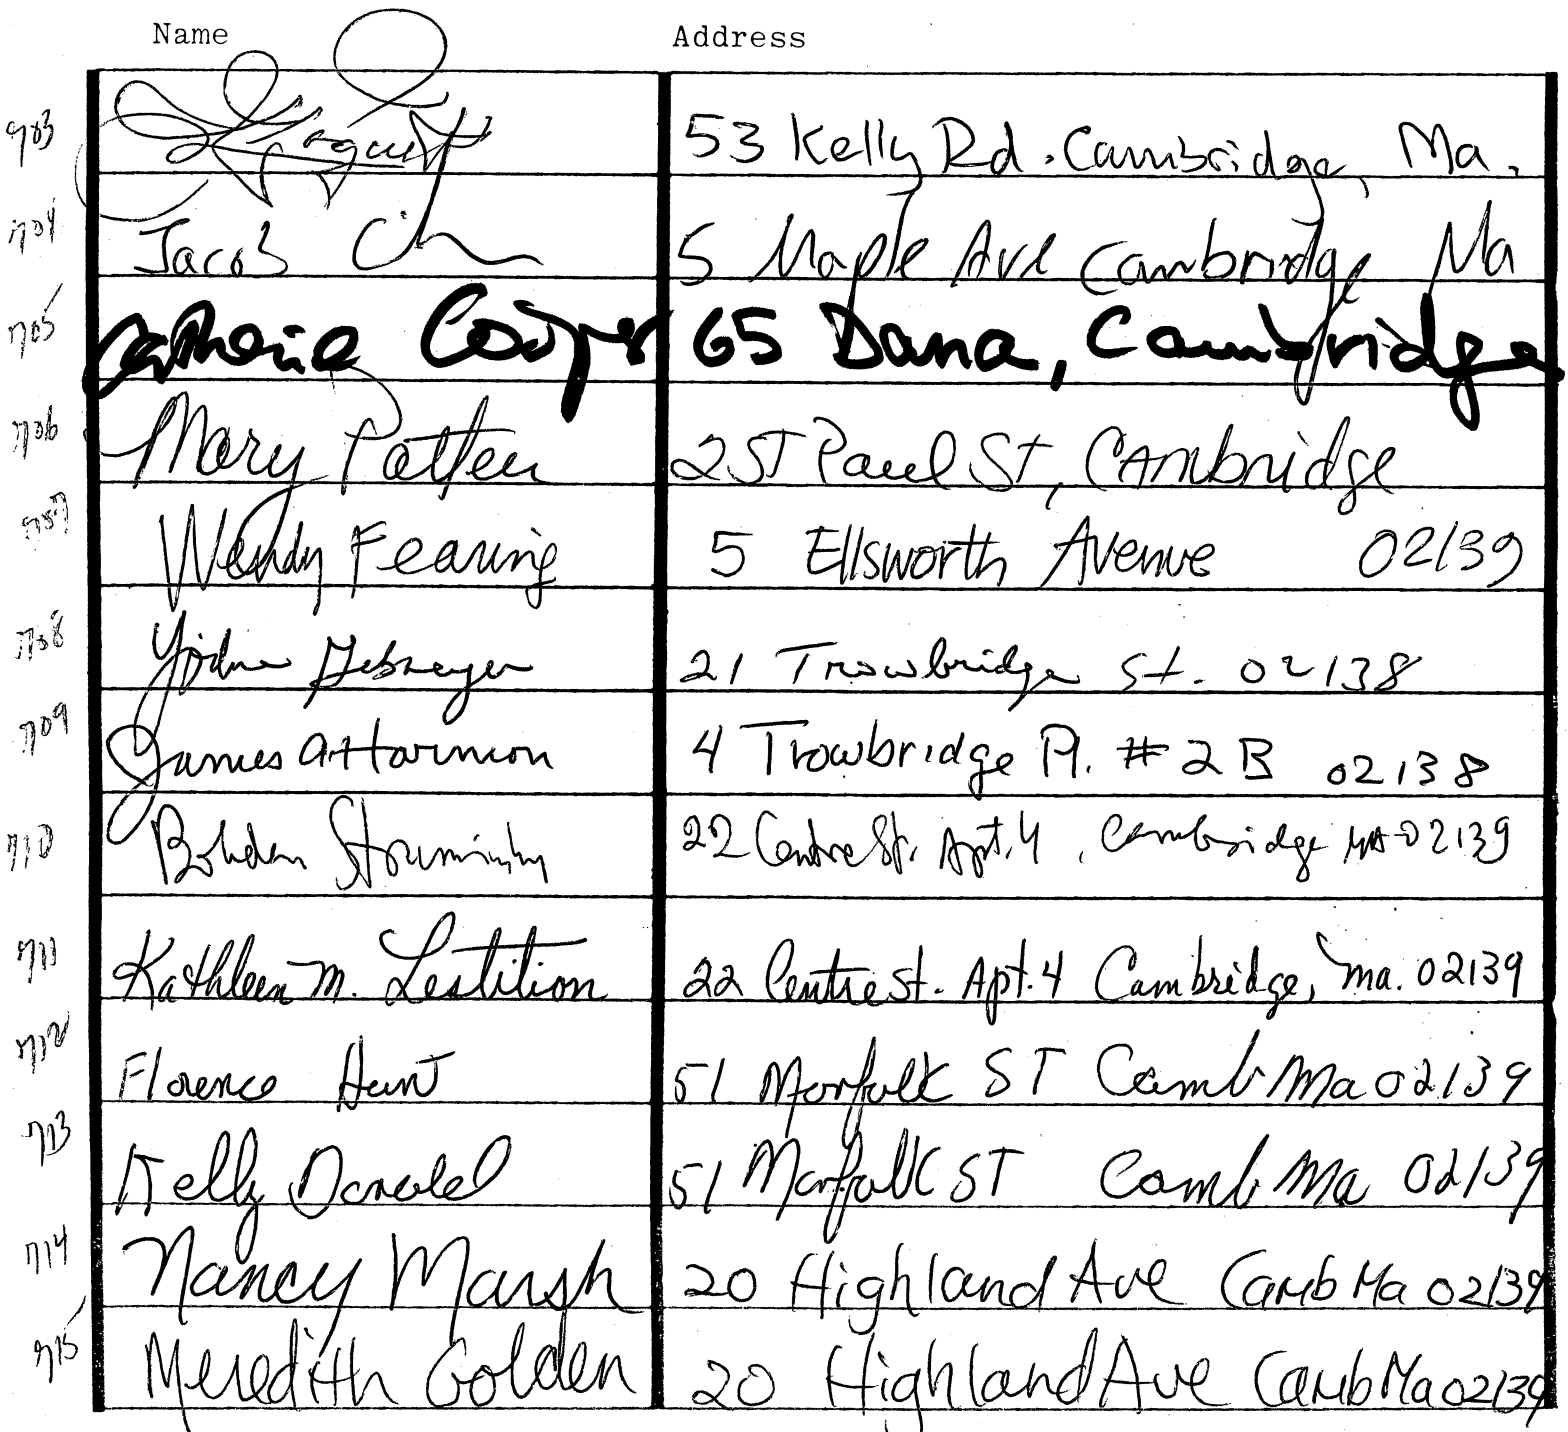 Name Address
53 Kelly Rd. Cambridge, Ma.
704 Jacob 5 Maple Ave Cambridge Ma
705 Catherine Cooper 65 Dana, Cambridge
706 Mary Patten 2 ST Paul St, Cambridge
707 Wendy Fearing 5 Ellsworth Avenue 02139
708 21 Trowbridge St. 02138
709 James A Harmon 4 Trowbridge Pl. #2B 02138
710 Bohdan 22 Centre St. Apt. 4, Cambridge MA 02139
711 Kathleen M. Lestition 22 Centre St. Apt. 4 Cambridge, Ma. 02139
712 Florence Hunt 51 Norfolk ST Camb Ma 02139
713 Kelly 51 Norfolk ST Camb Ma 02139
714 Nancy Marsh 20 Highland Ave Camb Ma 02139
715 Meredith Golden 20 Highland Ave Camb Ma 02139